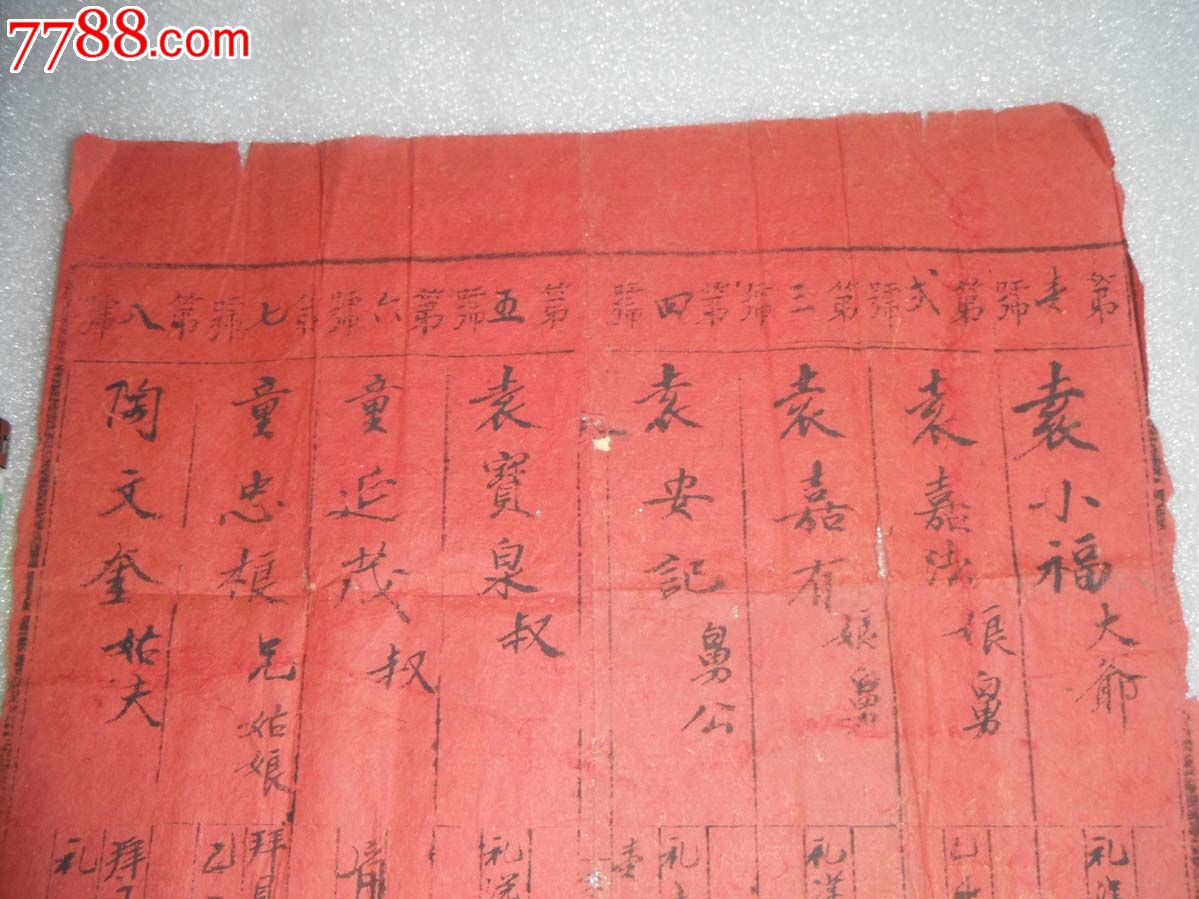 7788.com
第壹號
袁小福大爺
礼洋
第弍號
袁嘉法娘舅
第三號
袁嘉有娘舅
礼洋
第四號
袁安記舅公
礼
壹
第五號
袁寶泉叔
礼洋
第六號
童延茂叔
第七號
童忠根兄姑娘
拜見
第八號
陶文奎姑夫
拜
礼